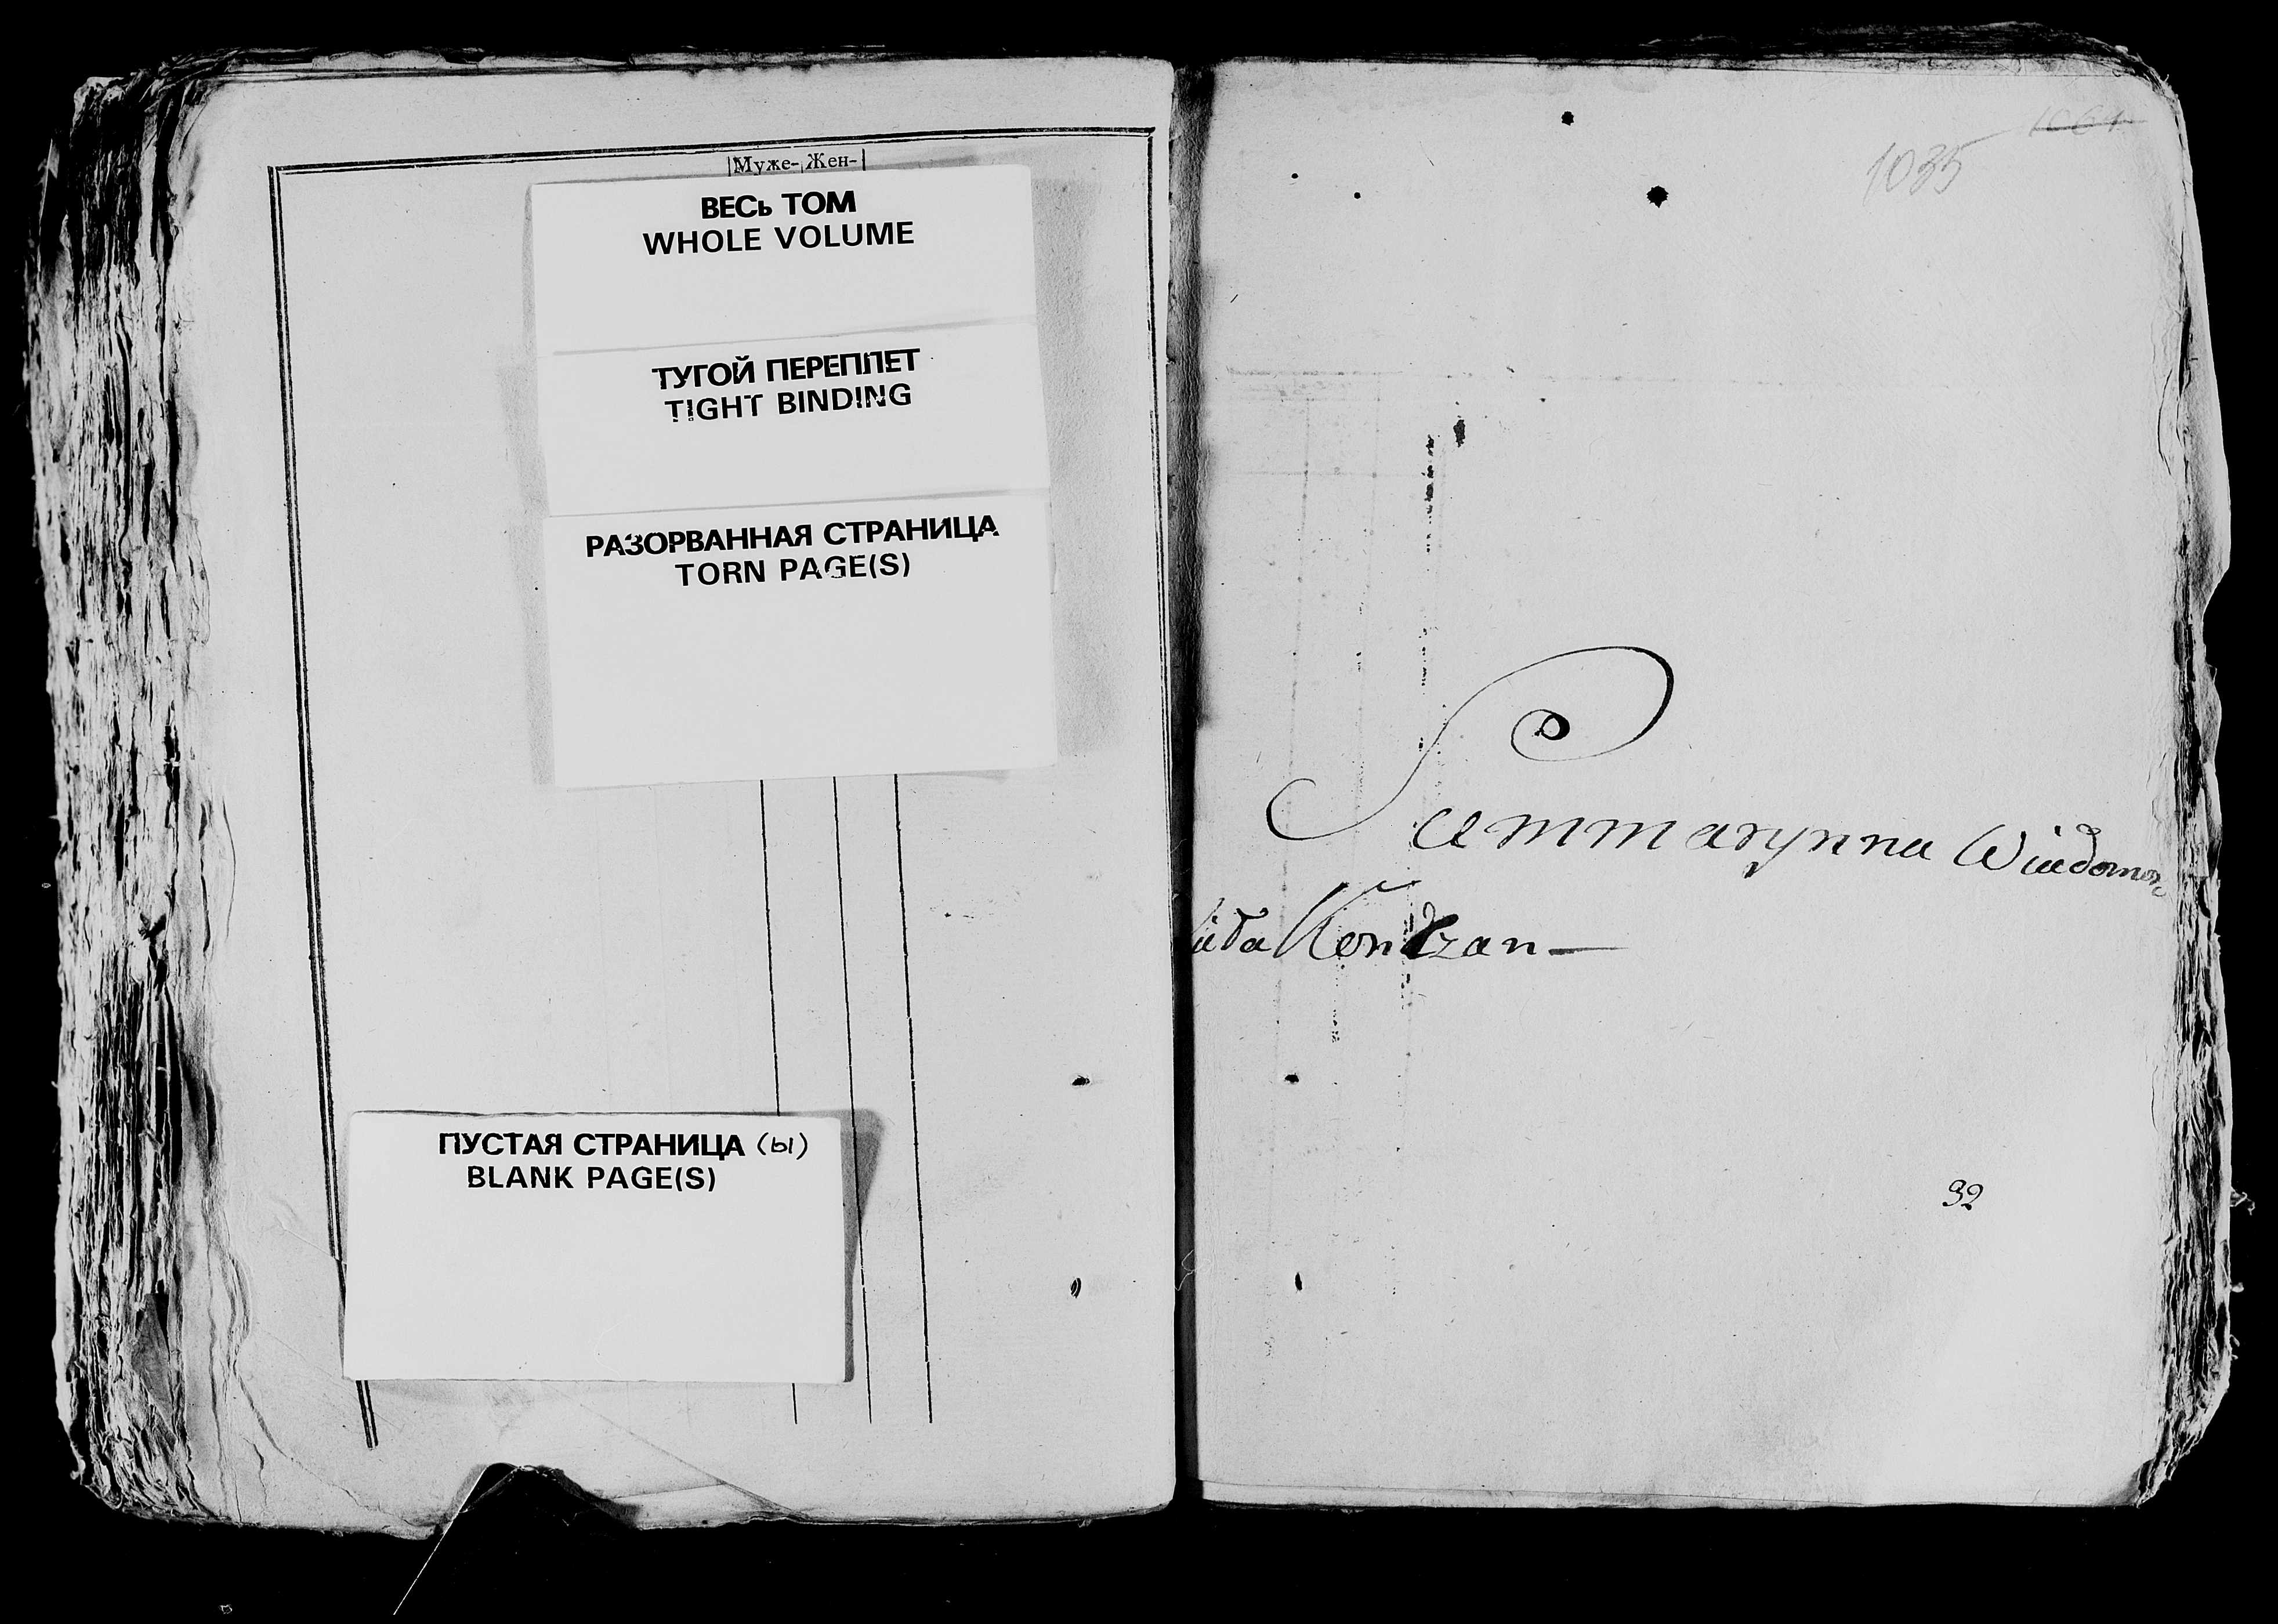 Муже- Жен-
ВЕСЬ ТОМ
WHOLE VOLUME
ТУГОЙ ПЕРЕПЛЕТ
TIGHT BINDING
РАЗОРВАННАЯ СТРАНИЦА
TORN PAGE(S)
ПУСТАЯ СТРАНИЦА (Ы)
BLANK PAGE(S)
1061
1035
Summarynna
32